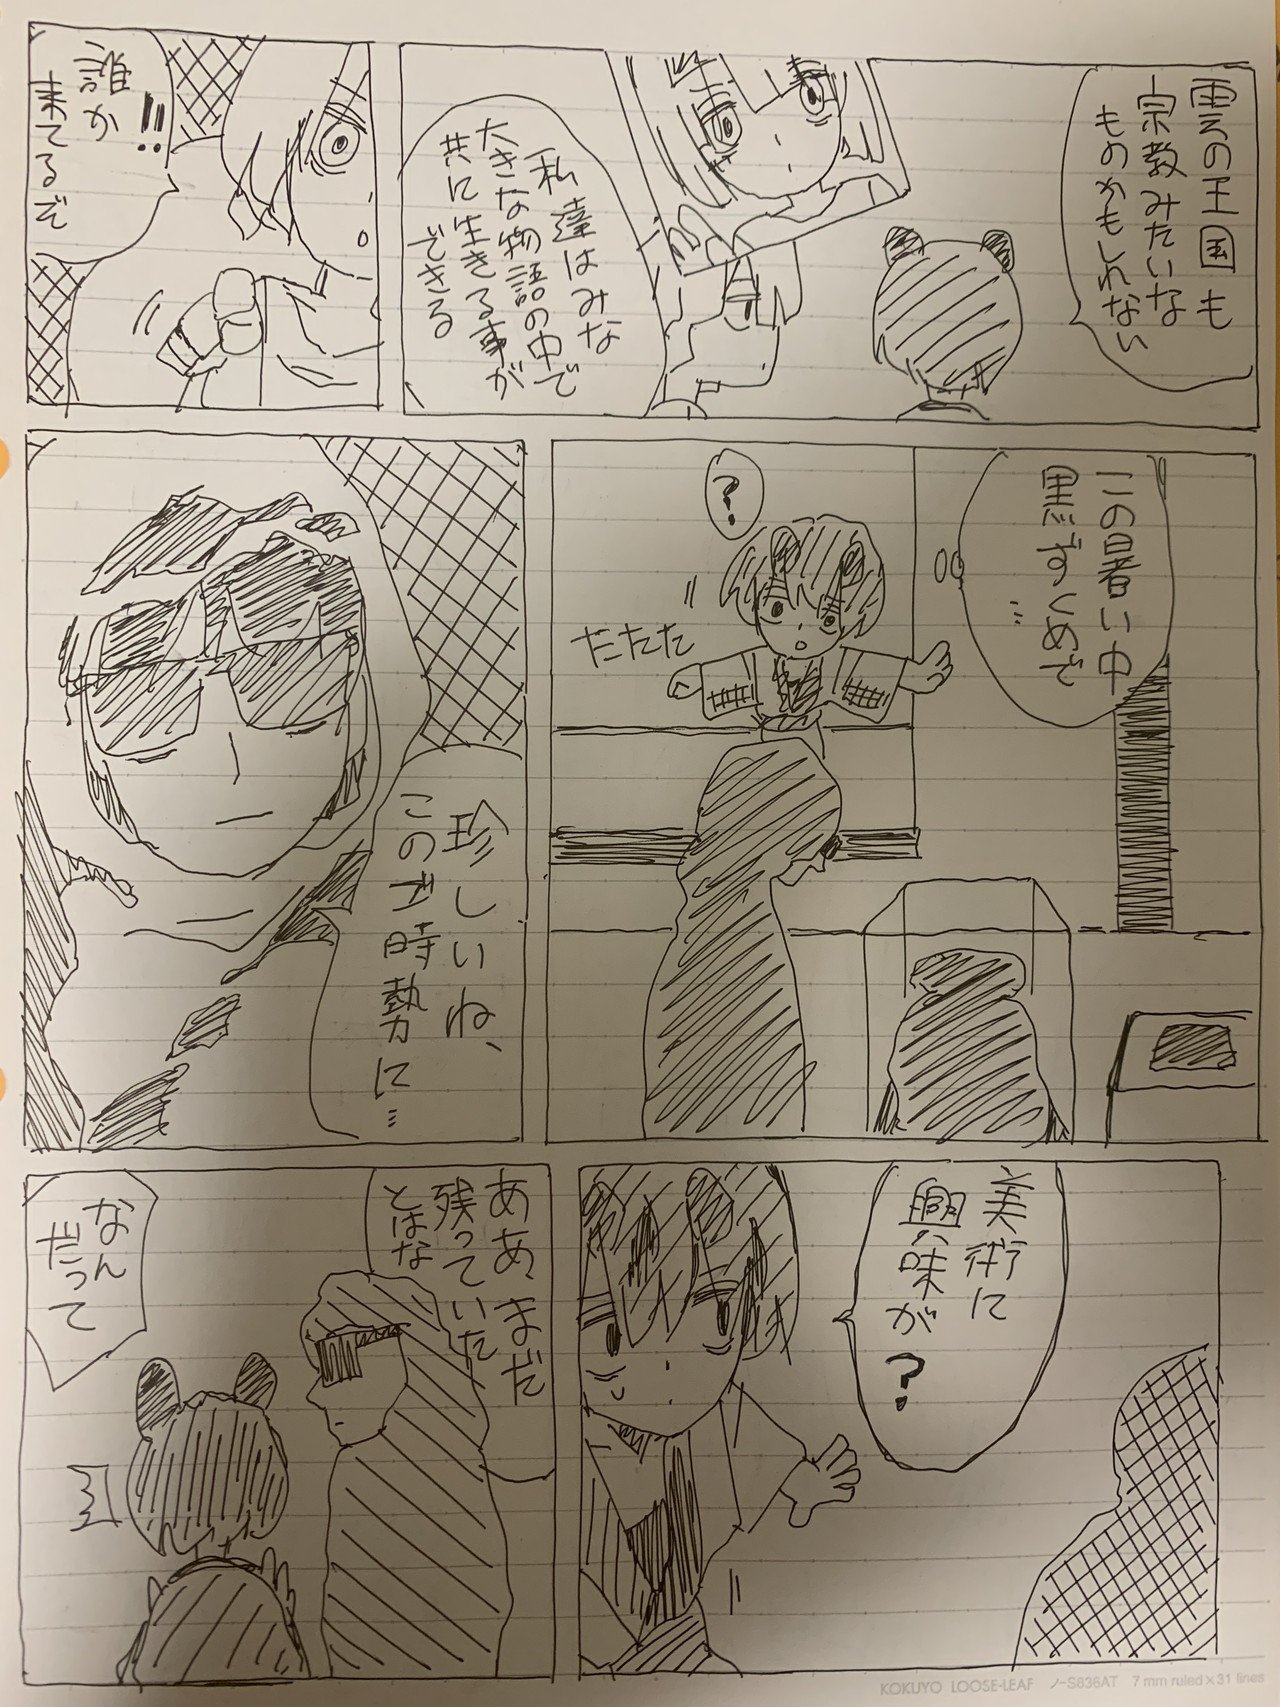 雲の王国も
宗教みたいな
ものかもしれない
私達はみな
大きな物語の中で
共に生きる事が
できる
!!
誰か
来てるぞ
この暑い中
黒ずくめで
…
?
だたた
珍しいね、
このご時勢に…
美術に
興味が?
ああ、まだ
残っていた
とはな
なん
だって
KOKUYO LOOSE-LEAF ノ-S836AT 7 mm ruled×31 lines